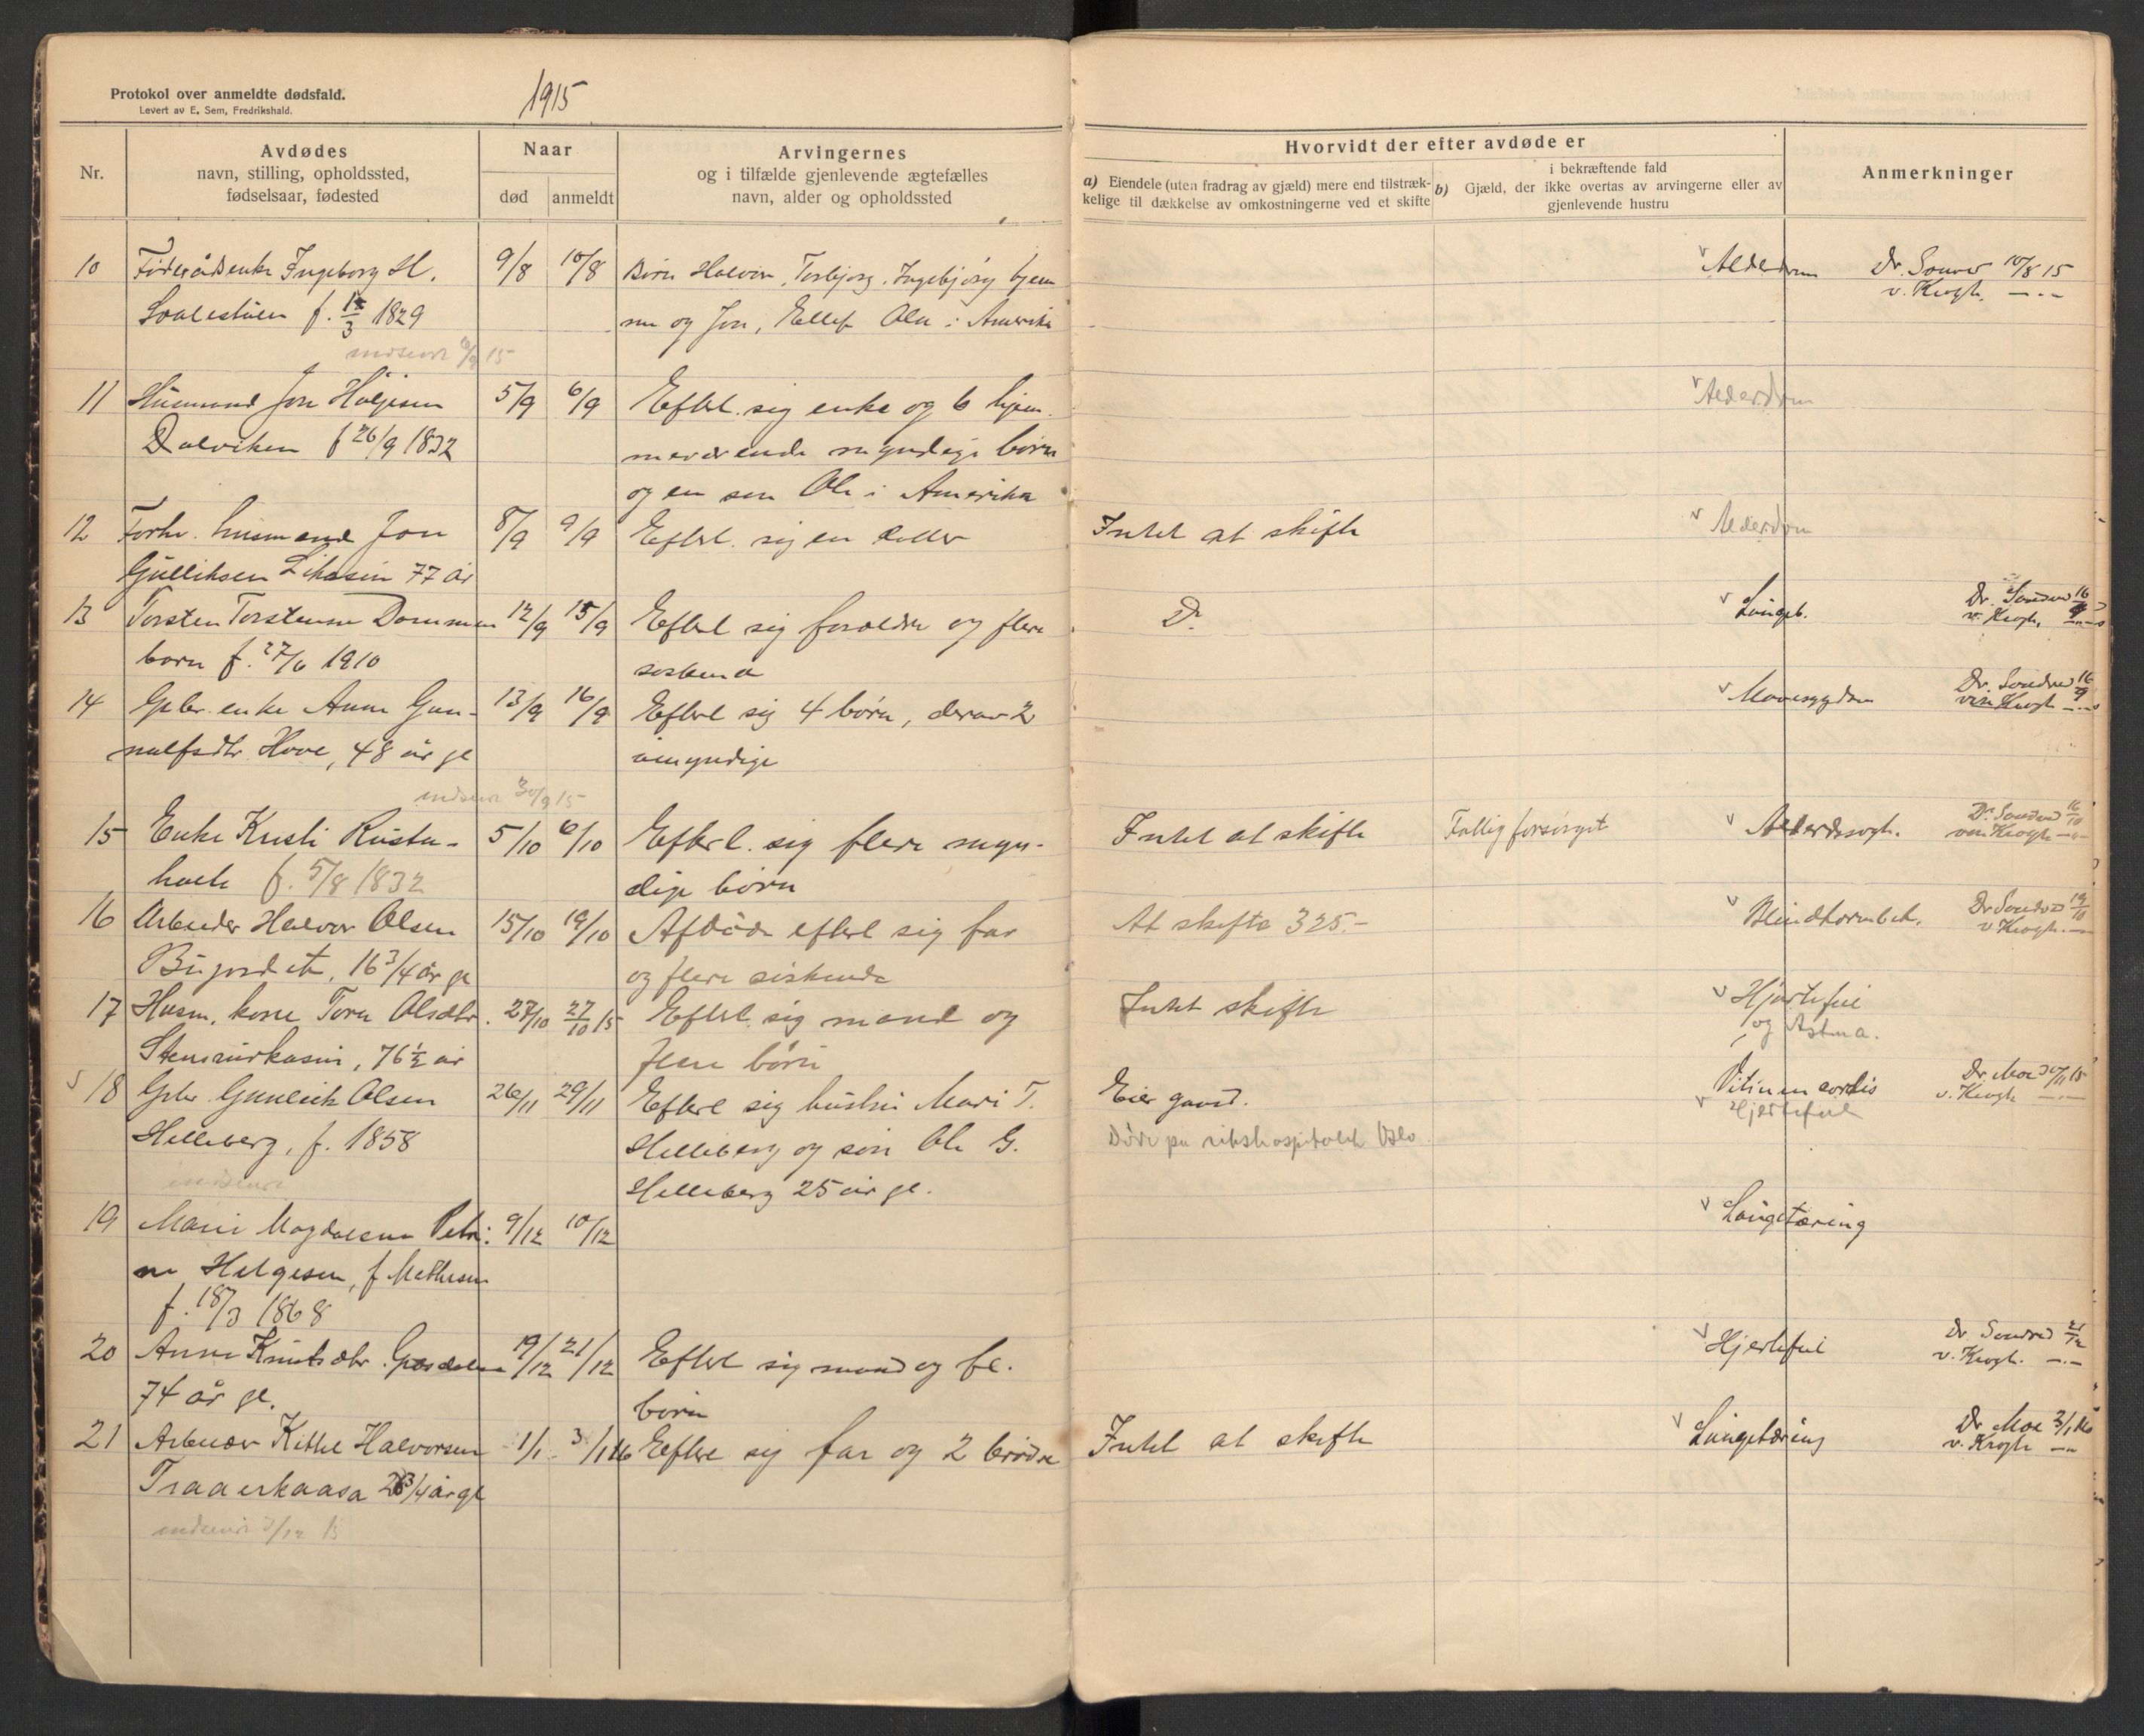 Protokol over anmeldte dødsfald.
Levert av E. Sem, Fredrikshald.
1915
Nr.
Avdødes
navn, stilling, opholdssted,
fødselsaar, fødested
Naar
død
anmeldt
Arvingernes
og i tilfælde gjenlevende ægtefælles
navn, alder og opholdssted
Hvorvidt der efter avdøde er
a) Eiendele (uten fradrag av gjæld) mere end tilstræk-
kelige til dækkelse av omkostningerne ved et skifte
i bekræftende fald
b) Gjæld, der ikke overtas av arvingerne eller av
gjenlevende hustru
Anmerkninger
10 Føderådsenke Ingeborg H. 9/8 10/8 Børn Halvor, Torbjørg, Ingebjørg hjem Alderdom Dr. 10/8 15
f. 1829 me og Jon, Ellef Ole i Amerika v. Krogh. —.—
11 Husmand Jon Håljesen 5/9 6/9 Efterl. sig enke og 6 hjem. Alderdom
Dalviken f 26/9 1832 meværende myndige børn
og en søn Ole i Amerika
12 Forhv. husmand Jon 8/9 9/9 Efterl. sig en datter Intet at skifte Alderdom
Gulliksen 77 år
13 Torsten Torstensen Dammen 12/9 15/9 Efterl sig forældre og flere Do Lungeb. Dr. Sondred 16/9
barn f. 27/6 1910 søskend v. Krogh.
14 Gbr. enke Anne Gun- 13/9 16/9 Efterl sig 4 børn, derav 2 Mavesygdom Dr. Sondred 16/9
nulfsdtr. Hove, 48 år gl umyndige von Krogh
indsendt 30/9 15
15 Enke Kristi Rustu- 5/10 6/10 Efterl. sig flere myn- Intet at skifte Fattigforsørget Dr. Sondred 16/10
f. 5/8 1832 dige børn von Krogh
16 Arbeider Halvor Olsen 15/10 19/10 Afdøde efterl sig far At skifte 325.- Blindtarmbet. Dr Sondred 19/10
16 3/4 år gl og flere søskende v. Krogh.
17 Husm. kone Tore Olsdtr. 27/10 27/10 15 Efterl. sig mand og Intet skifte Hjertefeil
76 1/2 år flere børn og Astma.
18 Gbr. Gunleik Olsen 26/11 29/11 Efterl sig hustru Mari T. Eier gaard. Vitium cordis Dr. Moe 30/11 15
Helleberg, f. 1858 Helleberg og søn Ole G. Døde på rikshospitalet Oslo Hjertefeil v. Krogh —.—
indsendt Helleberg 25 år gl.
19 Marie Magdalena Petri- 9/12 10/12 Lungetæring
ne Helgesen, f Mathesen
f. 18/3 1868
20 Anne Knutsdtr. 19/12 21/12 Efterl sig mand og fl. Hjertefeil Dr. Sondred 21/12
74 år gl. børn v. Krogh. —.—
21 Arbeider Kittel Halvorsen 1/1 3/1 16 Efterl sig far og 2 brødre Intet at skifte Lungetæring Dr. Moe 3/1 16
Traaerkaasa år gl v. Krogh